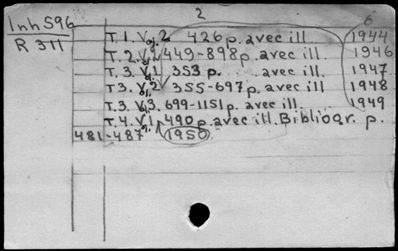 2
6
Inh 596
R 311
T. 1. V. 2 426 p. avec ill 1944
T. 2. V. 449-898 p. avec ill. 1946
T. 3. V. 1 353 p. avec ill 1947
T. 3. V. 2 355-697 p. avec ill 1948
T. 3. V. 3. 699-1151 p. avec ill. 1949
T. 4. V. 1 490 p. avec ill. Bibliogr. p.
481-487. 1950